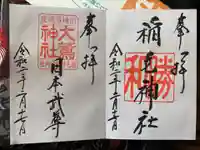 奉拝
大鳥
神社
日本武尊
令和二年二月十七日
奉拝
稲荷神社
勝
令和二年二月十七日